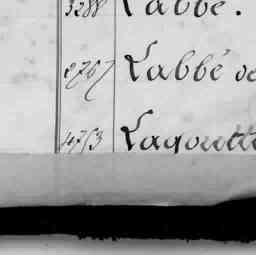 3288 Labbé.
2767 Labbé de
4753 Lagoutte